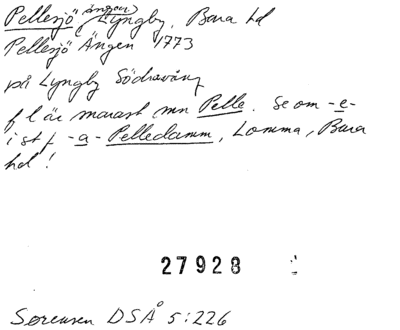 Pellesjö (ängar) Lyngby, Bara hd
Pellesjö Ängen 1773
på Lyngby Södravång
f l är marast mn Pelle. Se om -e-
i st f -a- Pelledamm, Lomma, Bara
hd!
27928
Sørensen DSÅ 5:226